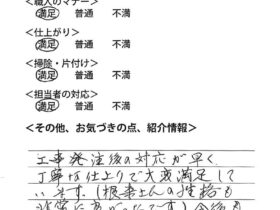 <職人のマナー>
満足 普通 不満
<仕上がり>
満足 普通 不満
<掃除・片付け>
満足 普通 不満
<担当者の対応>
満足 普通 不満
<その他、お気づきの点、紹介情報>
工事発注後の対応が早く
丁寧な仕上りで大変満足して
います。(根本さんの性格も